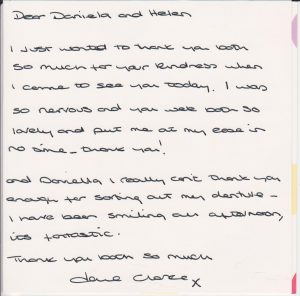 Dear Daniela and Helen
I just wanted to thank you both
so much for your kindness when
I came to see you today. I was
so nervous and you were both so
lovely and put me at my ease in
no time - thank you!
and Daniella I really can't thank you
enough for sorting out my denture -
I have been smiling all afternoon,
its fantastic.
Thank you both so much
Jane Clarke x